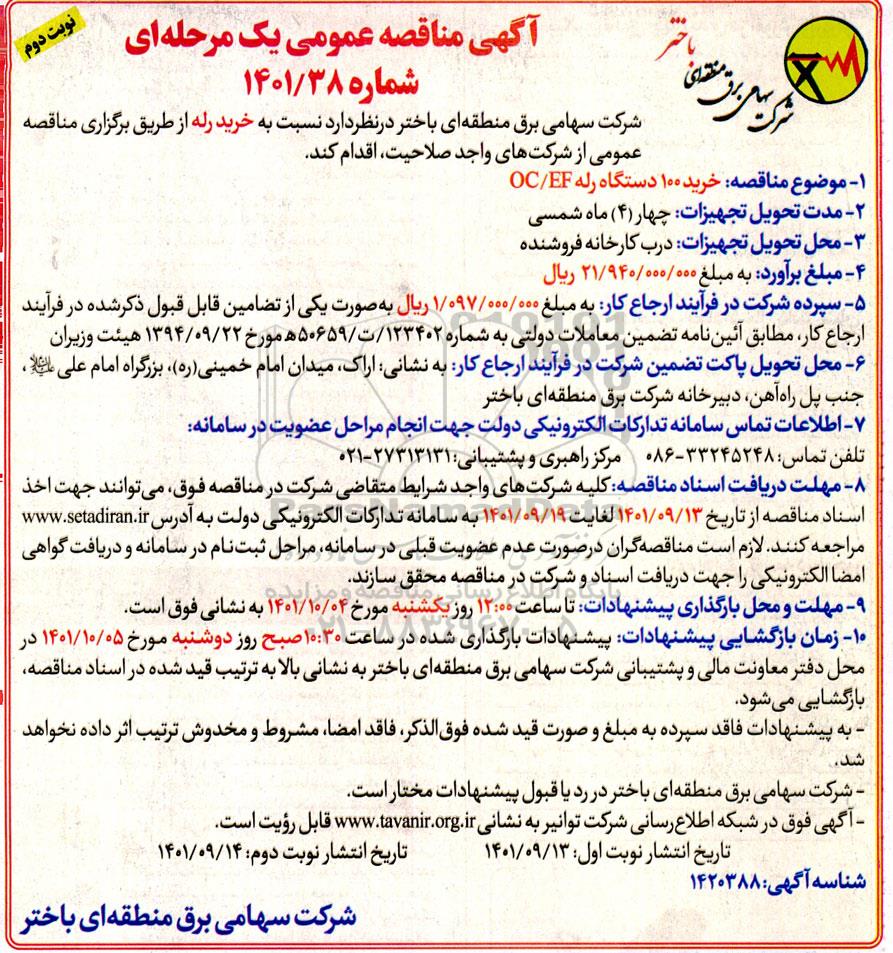 نوبت دوم
آگهی مناقصه عمومی یک مرحله‌ای
شماره ۱۴۰۱/۳۸
شرکت سهامی برق منطقه‌ای باختر
شرکت سهامی برق منطقه‌ای باختر درنظردارد نسبت به خرید رله از طریق برگزاری مناقصه
عمومی از شرکت‌های واجد صلاحیت، اقدام کند.
۱- موضوع مناقصه: خرید ۱۰۰ دستگاه رله OC/EF
۲- مدت تحویل تجهیزات: چهار (۴) ماه شمسی
۳- محل تحویل تجهیزات: درب کارخانه فروشنده
۴- مبلغ برآورد: به مبلغ ۲۱/۹۴۰/۰۰۰/۰۰۰ ریال
۵- سپرده شرکت در فرآیند ارجاع کار: به مبلغ ۱/۰۹۷/۰۰۰/۰۰۰ ریال به‌صورت یکی از تضامین قابل قبول ذکرشده در فرآیند
ارجاع کار، مطابق آئین‌نامه تضمین معاملات دولتی به شماره ۱۲۳۴۰۲/ت/۵۰۶۵۹ه‍ مورخ ۱۳۹۴/۰۹/۲۲ هیئت وزیران
۶- محل تحویل پاکت تضمین شرکت در فرآیند ارجاع کار: به نشانی: اراک، میدان امام خمینی(ره)، بزرگراه امام علی علیه‌السلام ،
جنب پل راه‌آهن، دبیرخانه شرکت برق منطقه‌ای باختر
۷- اطلاعات تماس سامانه تدارکات الکترونیکی دولت جهت انجام مراحل عضویت در سامانه:
تلفن تماس: ۳۳۲۴۵۲۴۸-۰۸۶ مرکز راهبری و پشتیبانی: ۲۷۳۱۳۱۳۱-۰۲۱
۸- مهلت دریافت اسناد مناقصه: کلیه شرکت‌های واجد شرایط متقاضی شرکت در مناقصه فوق، می‌توانند جهت اخذ
اسناد مناقصه از تاریخ ۱۴۰۱/۰۹/۱۳ لغایت ۱۴۰۱/۰۹/۱۹ به سامانه تدارکات الکترونیکی دولت به آدرس www.setadiran.ir
مراجعه کنند. لازم است مناقصه‌گران درصورت عدم عضویت قبلی در سامانه، مراحل ثبت‌نام در سامانه و دریافت گواهی
امضا الکترونیکی را جهت دریافت اسناد و شرکت در مناقصه محقق سازند.
۹- مهلت و محل بارگذاری پیشنهادات: تا ساعت ۱۲:۰۰ روز یکشنبه مورخ ۱۴۰۱/۱۰/۰۴ به نشانی فوق است.
۱۰- زمان بازگشایی پیشنهادات: پیشنهادات بارگذاری شده در ساعت ۱۰:۳۰ صبح روز دوشنبه مورخ ۱۴۰۱/۱۰/۰۵ در
محل دفتر معاونت مالی و پشتیبانی شرکت سهامی برق منطقه‌ای باختر به نشانی بالا به ترتیب قید شده در اسناد مناقصه،
بازگشایی می‌شود.
- به پیشنهادات فاقد سپرده به مبلغ و صورت قید شده فوق‌الذکر، فاقد امضا، مشروط و مخدوش ترتیب اثر داده نخواهد
شد.
- شرکت سهامی برق منطقه‌ای باختر در رد یا قبول پیشنهادات مختار است.
- آگهی فوق در شبکه اطلاع‌رسانی شرکت توانیر به نشانی www.tavanir.org.ir قابل رؤیت است.
تاریخ انتشار نوبت اول: ۱۴۰۱/۰۹/۱۳ تاریخ انتشار نوبت دوم: ۱۴۰۱/۰۹/۱۴
شناسه آگهی: ۱۴۲۰۳۸۸
شرکت سهامی برق منطقه‌ای باختر